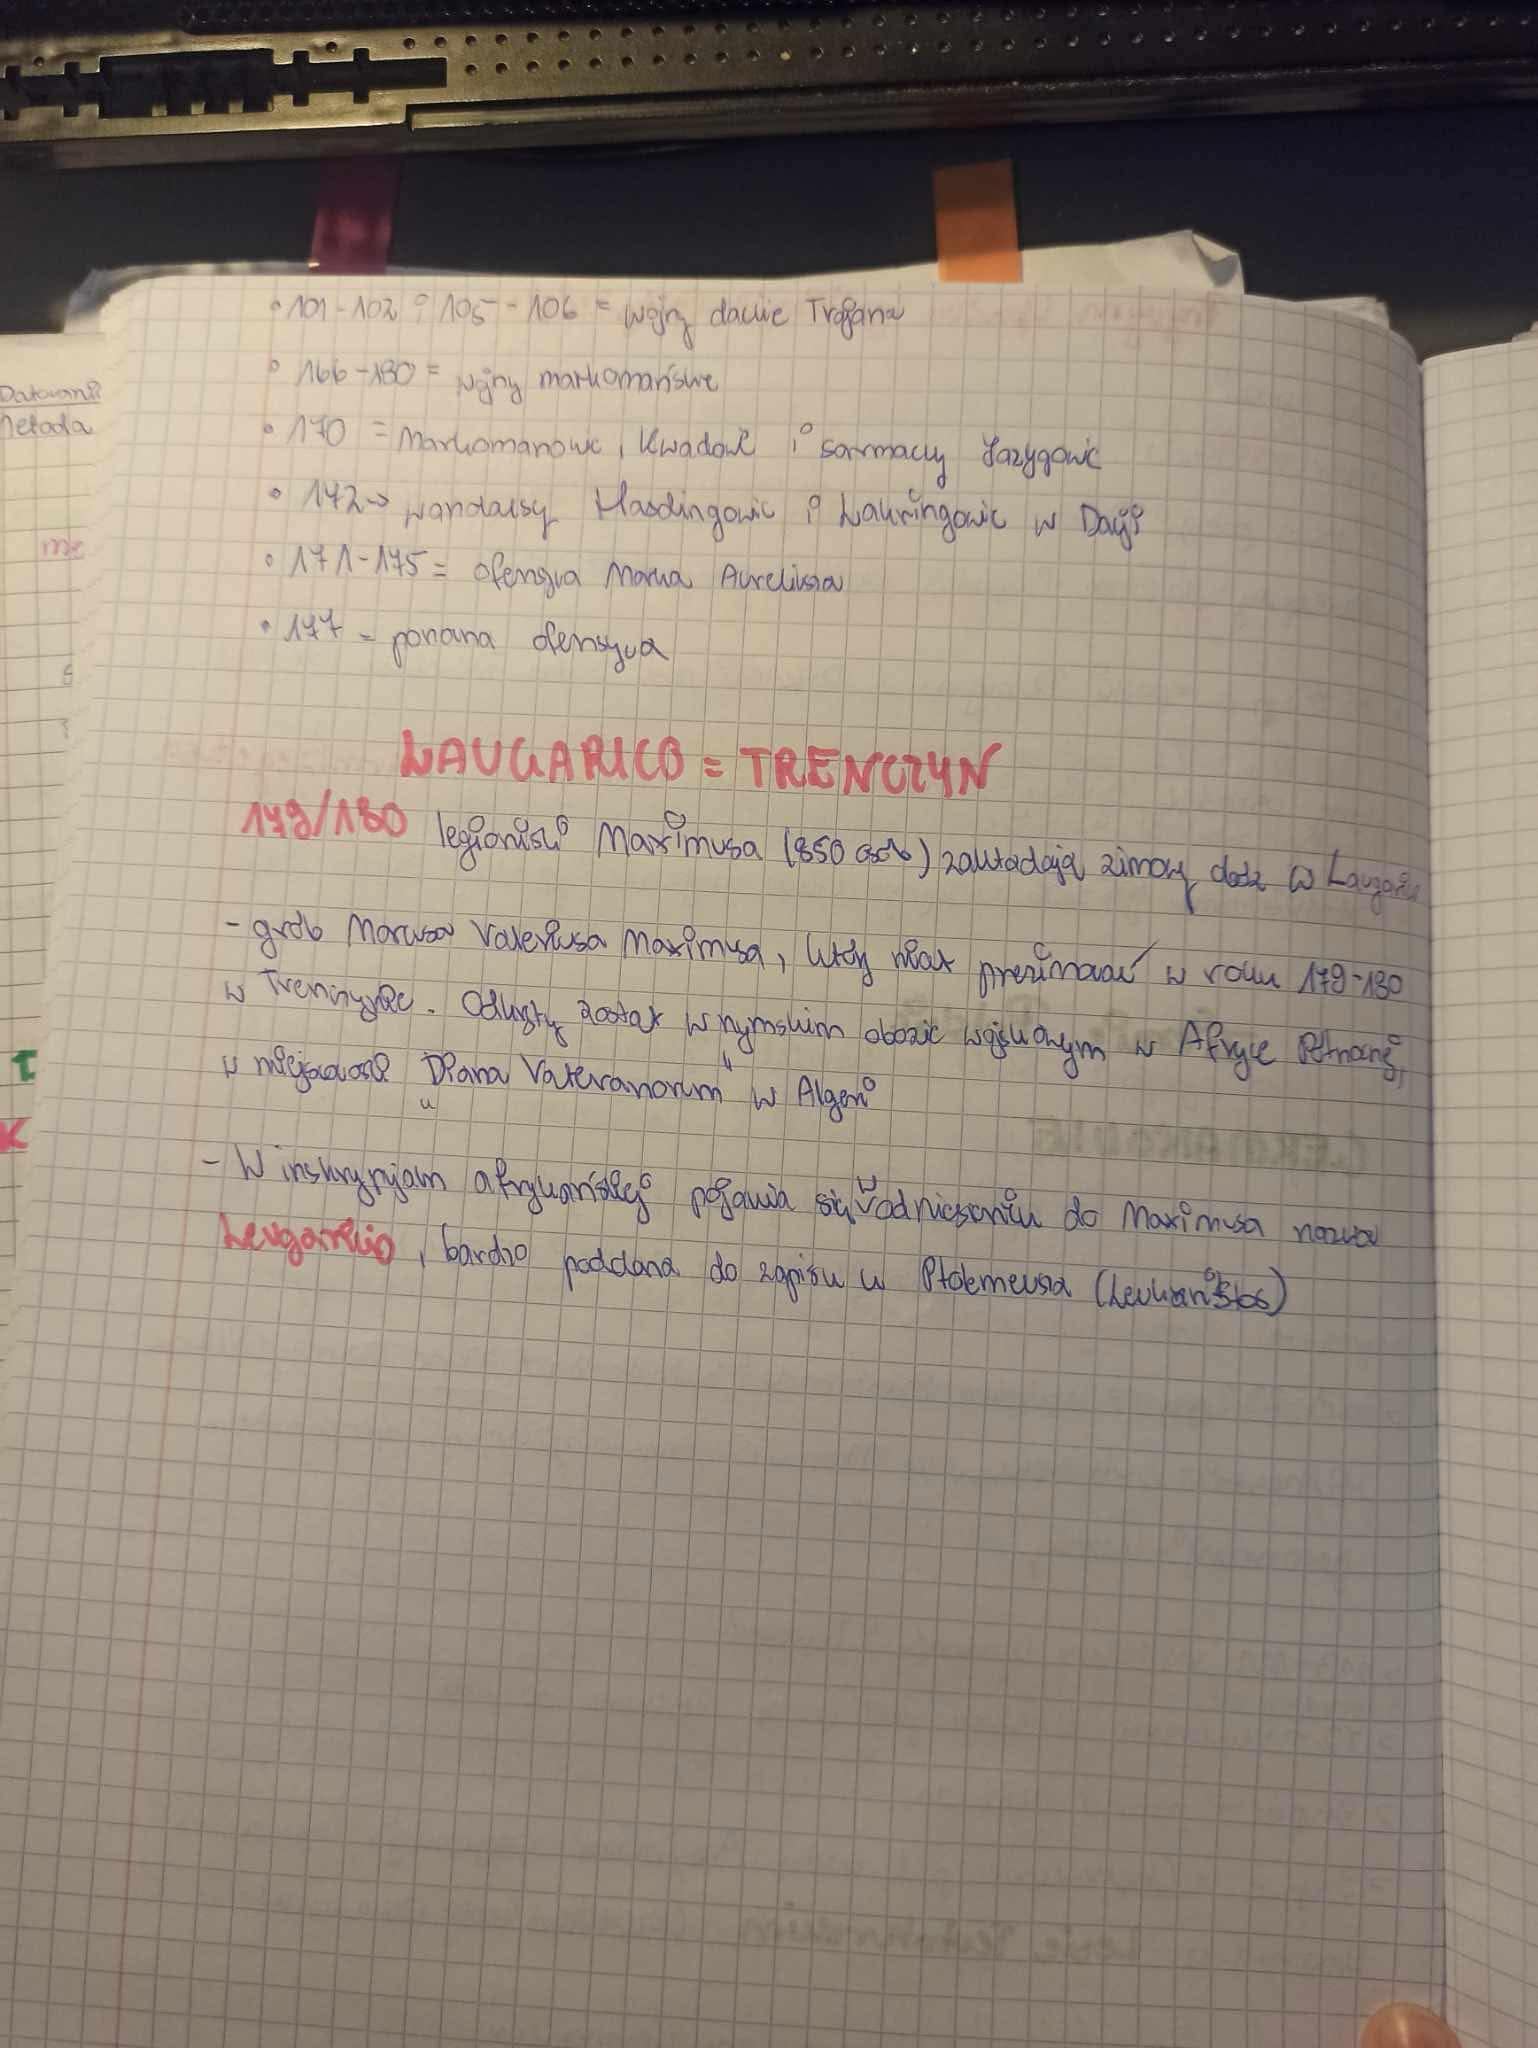 • 101-102 i 105-106 = wojny dackie Trajana
• 166-180 = wojny markomańskie
• 170 = Markomanowie, Kwadowie i sarmaccy Jazygowie
• 172 → wandalscy Hasdingowie i Lakringowie w Dacji
• 171-175 = ofensywa Marka Aureliusza
• 177 = ponowna ofensywa
LAUGARICO = TRENCZYN
179/180 legioniści Maximusa (850 osób) zakładają zimowy obóz w Laugaric
- grób Marcusa Valeriusa Maximusa, który miał przezimować w roku 179-180
w Trenczynie. Odkryty został w rzymskim obozie wojskowym w Afryce Północnej,
w miejscowości "Diana Vateranorum" w Algerii
- W inskrypcjam afrykańskiej pojawia się w odniesieniu do Maximusa nazwa
Leugaricio, bardzo podobna do zapisu u Ptolemeusza
Datowanie
Metoda
T
K